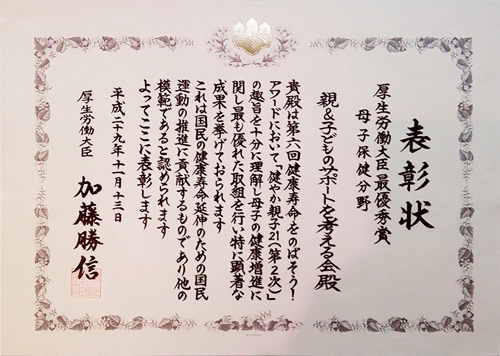 表彰状
厚生労働大臣最優秀賞
母子保健分野
親&子どものサポートを考える会殿
貴殿は第六回健康寿命をのばそう!
アワードにおいて「健やか親子21(第2次)」
の趣旨を十分に理解し母子の健康増進に
関し最も優れた取組を行い特に顕著な
成果を挙げておられます
これは国民の健康寿命延伸のための国民
運動の推進に貢献するものであり他の
模範であると認められます
よってここに表彰します
平成二十九年十一月十三日
厚生労働大臣 加藤勝信